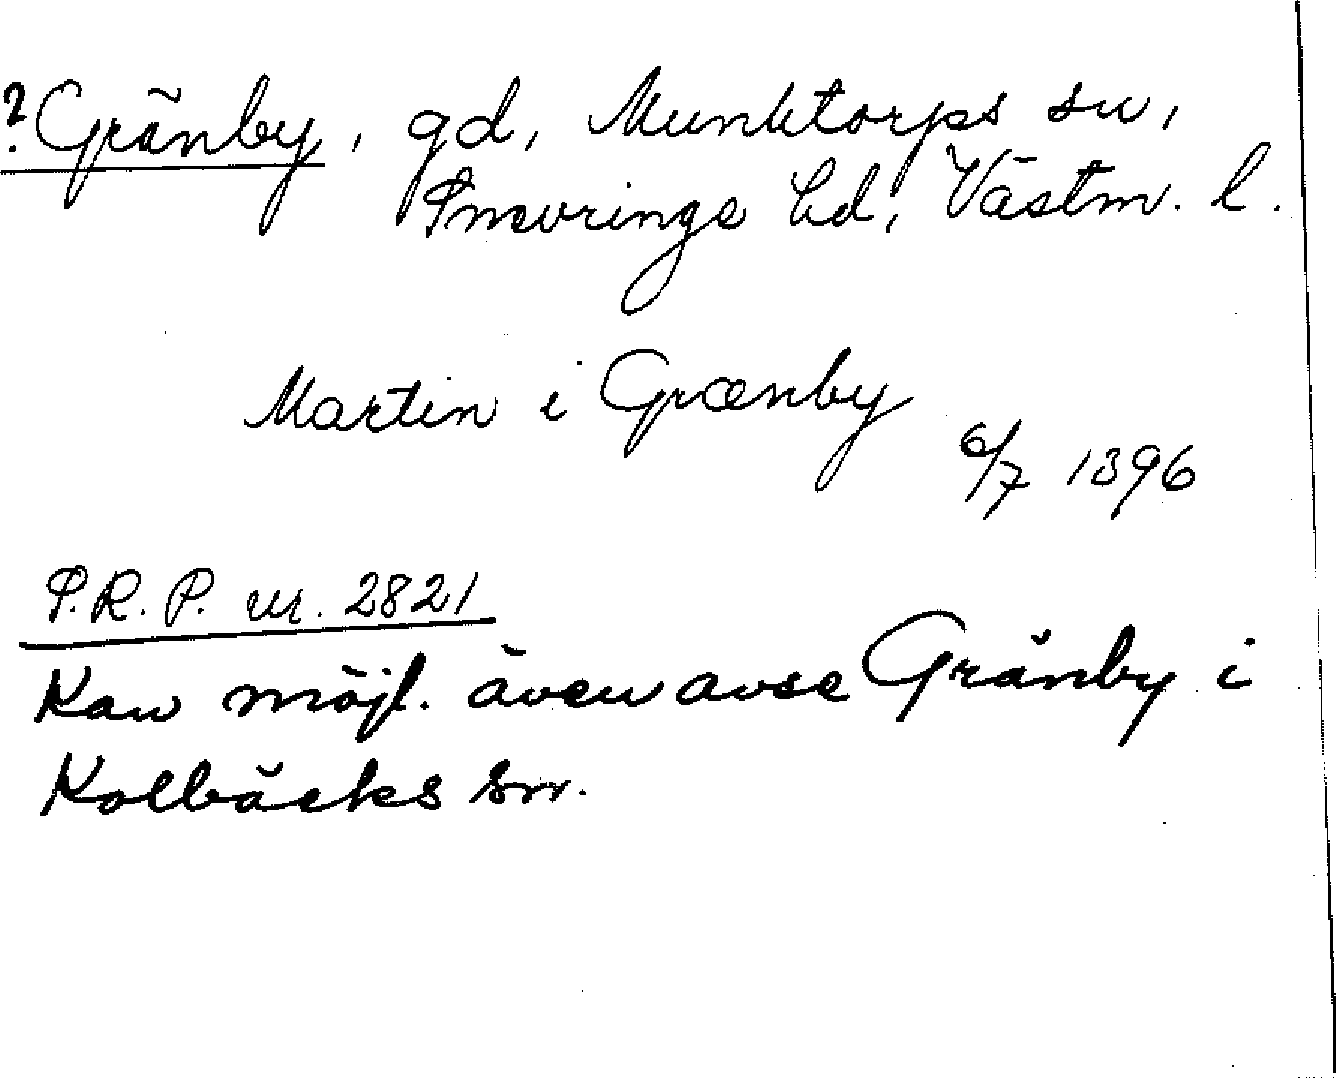 ? Gränby, gd, Munktorps sn,
Snevringe hd, Västm. l.
Martin i Grænby
6/7 1396
S.R.P. nr. 2821
Kan möjl. även avse Gränby i
Kolbäcks sn.